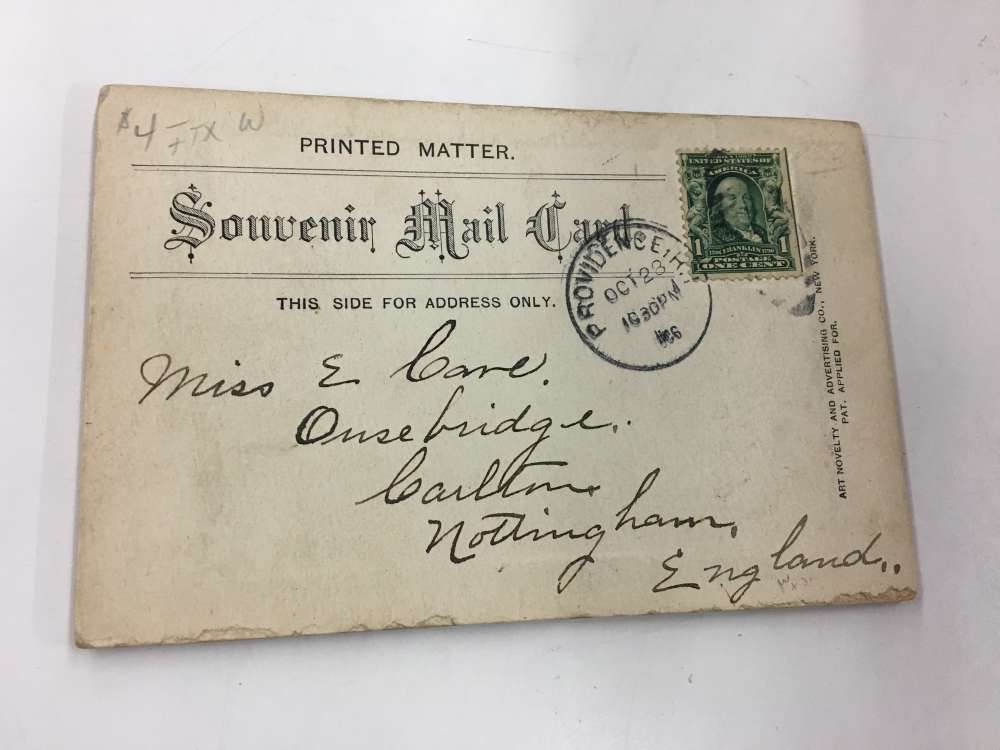 $4-
PRINTED MATTER.
Souvenir Mail Card
THIS SIDE FOR ADDRESS ONLY.
UNITED STATES OF
AMERICA
1 1
FRANKLIN
POSTAGE
ONE CENT
PROVIDENCE
OCT 28
1030PM
Miss E Cave.
Ousebridge.
Carlton
Nottingham,
England..
ART NOVELTY AND ADVERTISING CO., NEW YORK.
PAT. APPLIED FOR.